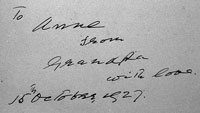 To
Anne
from
Grandpa
with love.
15th October, 1927.